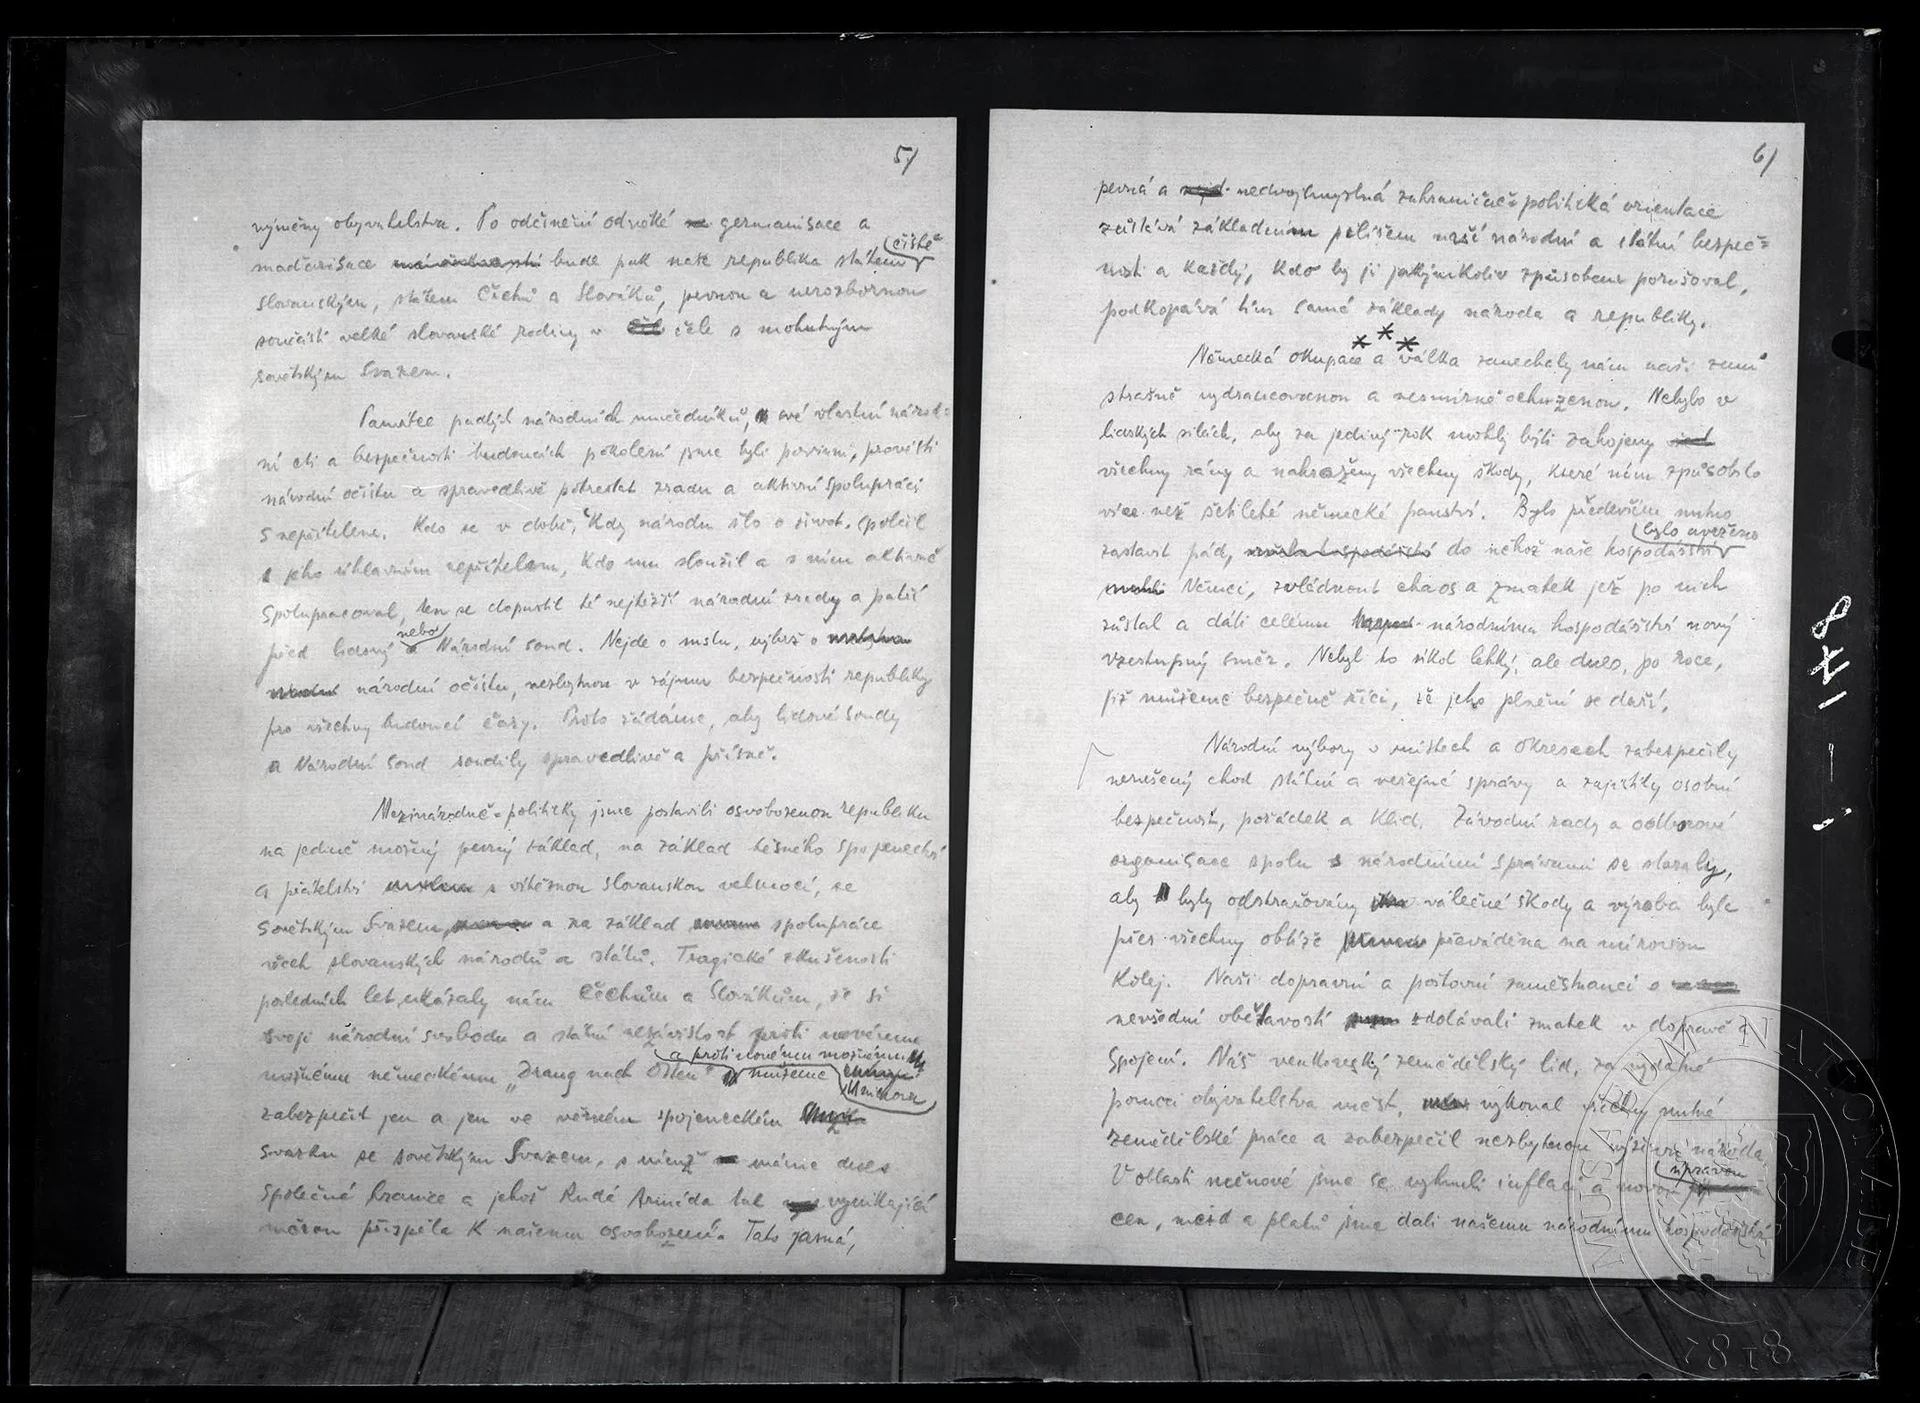 5/
výměny obyvatelstva. Po odčinění odvěké germanisace a
čistě
maďarisace bude pak naše republika státem
slovanským, státem Čechů a Slováků, pevnou a nerozbornou
součástí velké slovanské rodiny v čele s mohutným
sovětským Svazem.
Památce padlých národních mučedníků, své vlastní národ-
ní cti a bezpečnosti budoucích pokolení jsme byli povinni, provésti
národní očistu a spravedlivě potrestat zradu a aktivní spolupráci
s nepřítelem. Kdo se v době, kdy národu šlo o život, spolčil
s jeho úhlavním nepřítelem, kdo mu sloužil a s ním aktivně
spolupracoval, ten se dopustil té nejtěžší národní zrady a patří
nebo
před lidový Národní soud. Nejde o mstu, nýbrž o
národní očistu, nezbytnou v zájmu bezpečnosti republiky
pro všechny budoucí časy. Proto žádáme, aby lidové soudy
a Národní soud soudily spravedlivě a přísně.
Mezinárodně-politicky jsme postavili osvobozenou republiku
na jedině možný pevný základ, na základ těsného spojenectví
a přátelství s vítěznou slovanskou velmocí, se
sovětským Svazem, a na základ spolupráce
všech slovanských národů a států. Tragické zkušenosti
posledních let ukázaly nám Čechům a Slovákům, že si
svoji národní svobodu a státní nezávislost proti novému
a proti novému možnému
možnému německému „Drang nach Osten" můžeme
Mnichovu
zabezpečit jen a jen ve věrném spojeneckém
svazku se sovětským Svazem, s nímž máme dnes
společné hranice a jehož Rudá Armáda tak vynikající
měrou přispěla k našemu osvobození. Tato jasná,
6/
pevná a nedvojsmyslná zahraničně politická orientace
zůstává základním pilířem naší národní a státní bezpeč-
nosti a každý, kdo by ji jakýmkoliv způsobem porušoval,
podkopává tím samé základy národa a republiky.
* * *
Německá okupace a válka zanechaly nám naši zemi
strašně vydrancovanou a nesmírně ochuzenou. Nebylo v
lidských silách, aby za jediný rok mohly býti zahojeny
všechny rány a nahraženy všechny škody, které nám způsobilo
více než šestileté německé panství. Bylo především nutno
bylo uvrženo
zastavit pád, do něhož naše hospodářství
Němci, zvládnout chaos a zmatek jež po nich
zůstal a dáti celému národnímu hospodářství nový
vzestupný směr. Nebyl to úkol lehký, ale dnes, po roce,
již můžeme bezpečně říci, že jeho plnění se daří.
Národní výbory v místech a okresech zabezpečily
nerušený chod státní a veřejné správy a zajistily osobní
bezpečnost, pořádek a klid. Závodní rady a odborové
organisace spolu s národními správami se staraly,
aby byly odstraňovány válečné škody a výroba byla
přes všechny obtíže převáděna na mírovou
kolej. Naši dopravní a poštovní zaměstnanci s
nevšední obětavostí zdolávali zmatek v dopravě a
spojení. Náš venkovský zemědělský lid, za vydatné
pomoci obyvatelstva měst, vykonal všechny nutné
zemědělské práce a zabezpečil nezbytnou výživu národa.
úpravou
V oblasti měnové jsme se vyhnuli inflaci a novou
cen, mezd a platů jsme dali našemu národnímu hospodářství
1-148
MUSEUM NATIONALE
1818